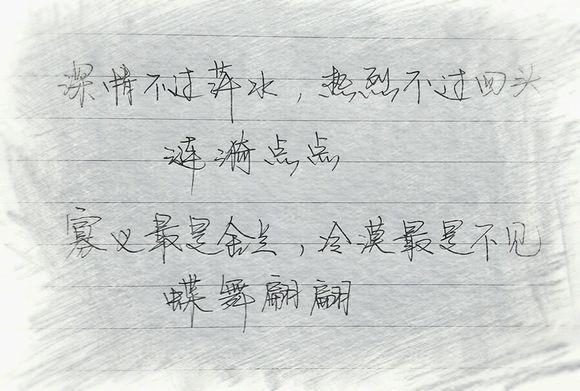 深情不过萍水，热烈不过回头
涟漪点点
寡义最是金兰，冷漠最是不见
蝶舞翩翩